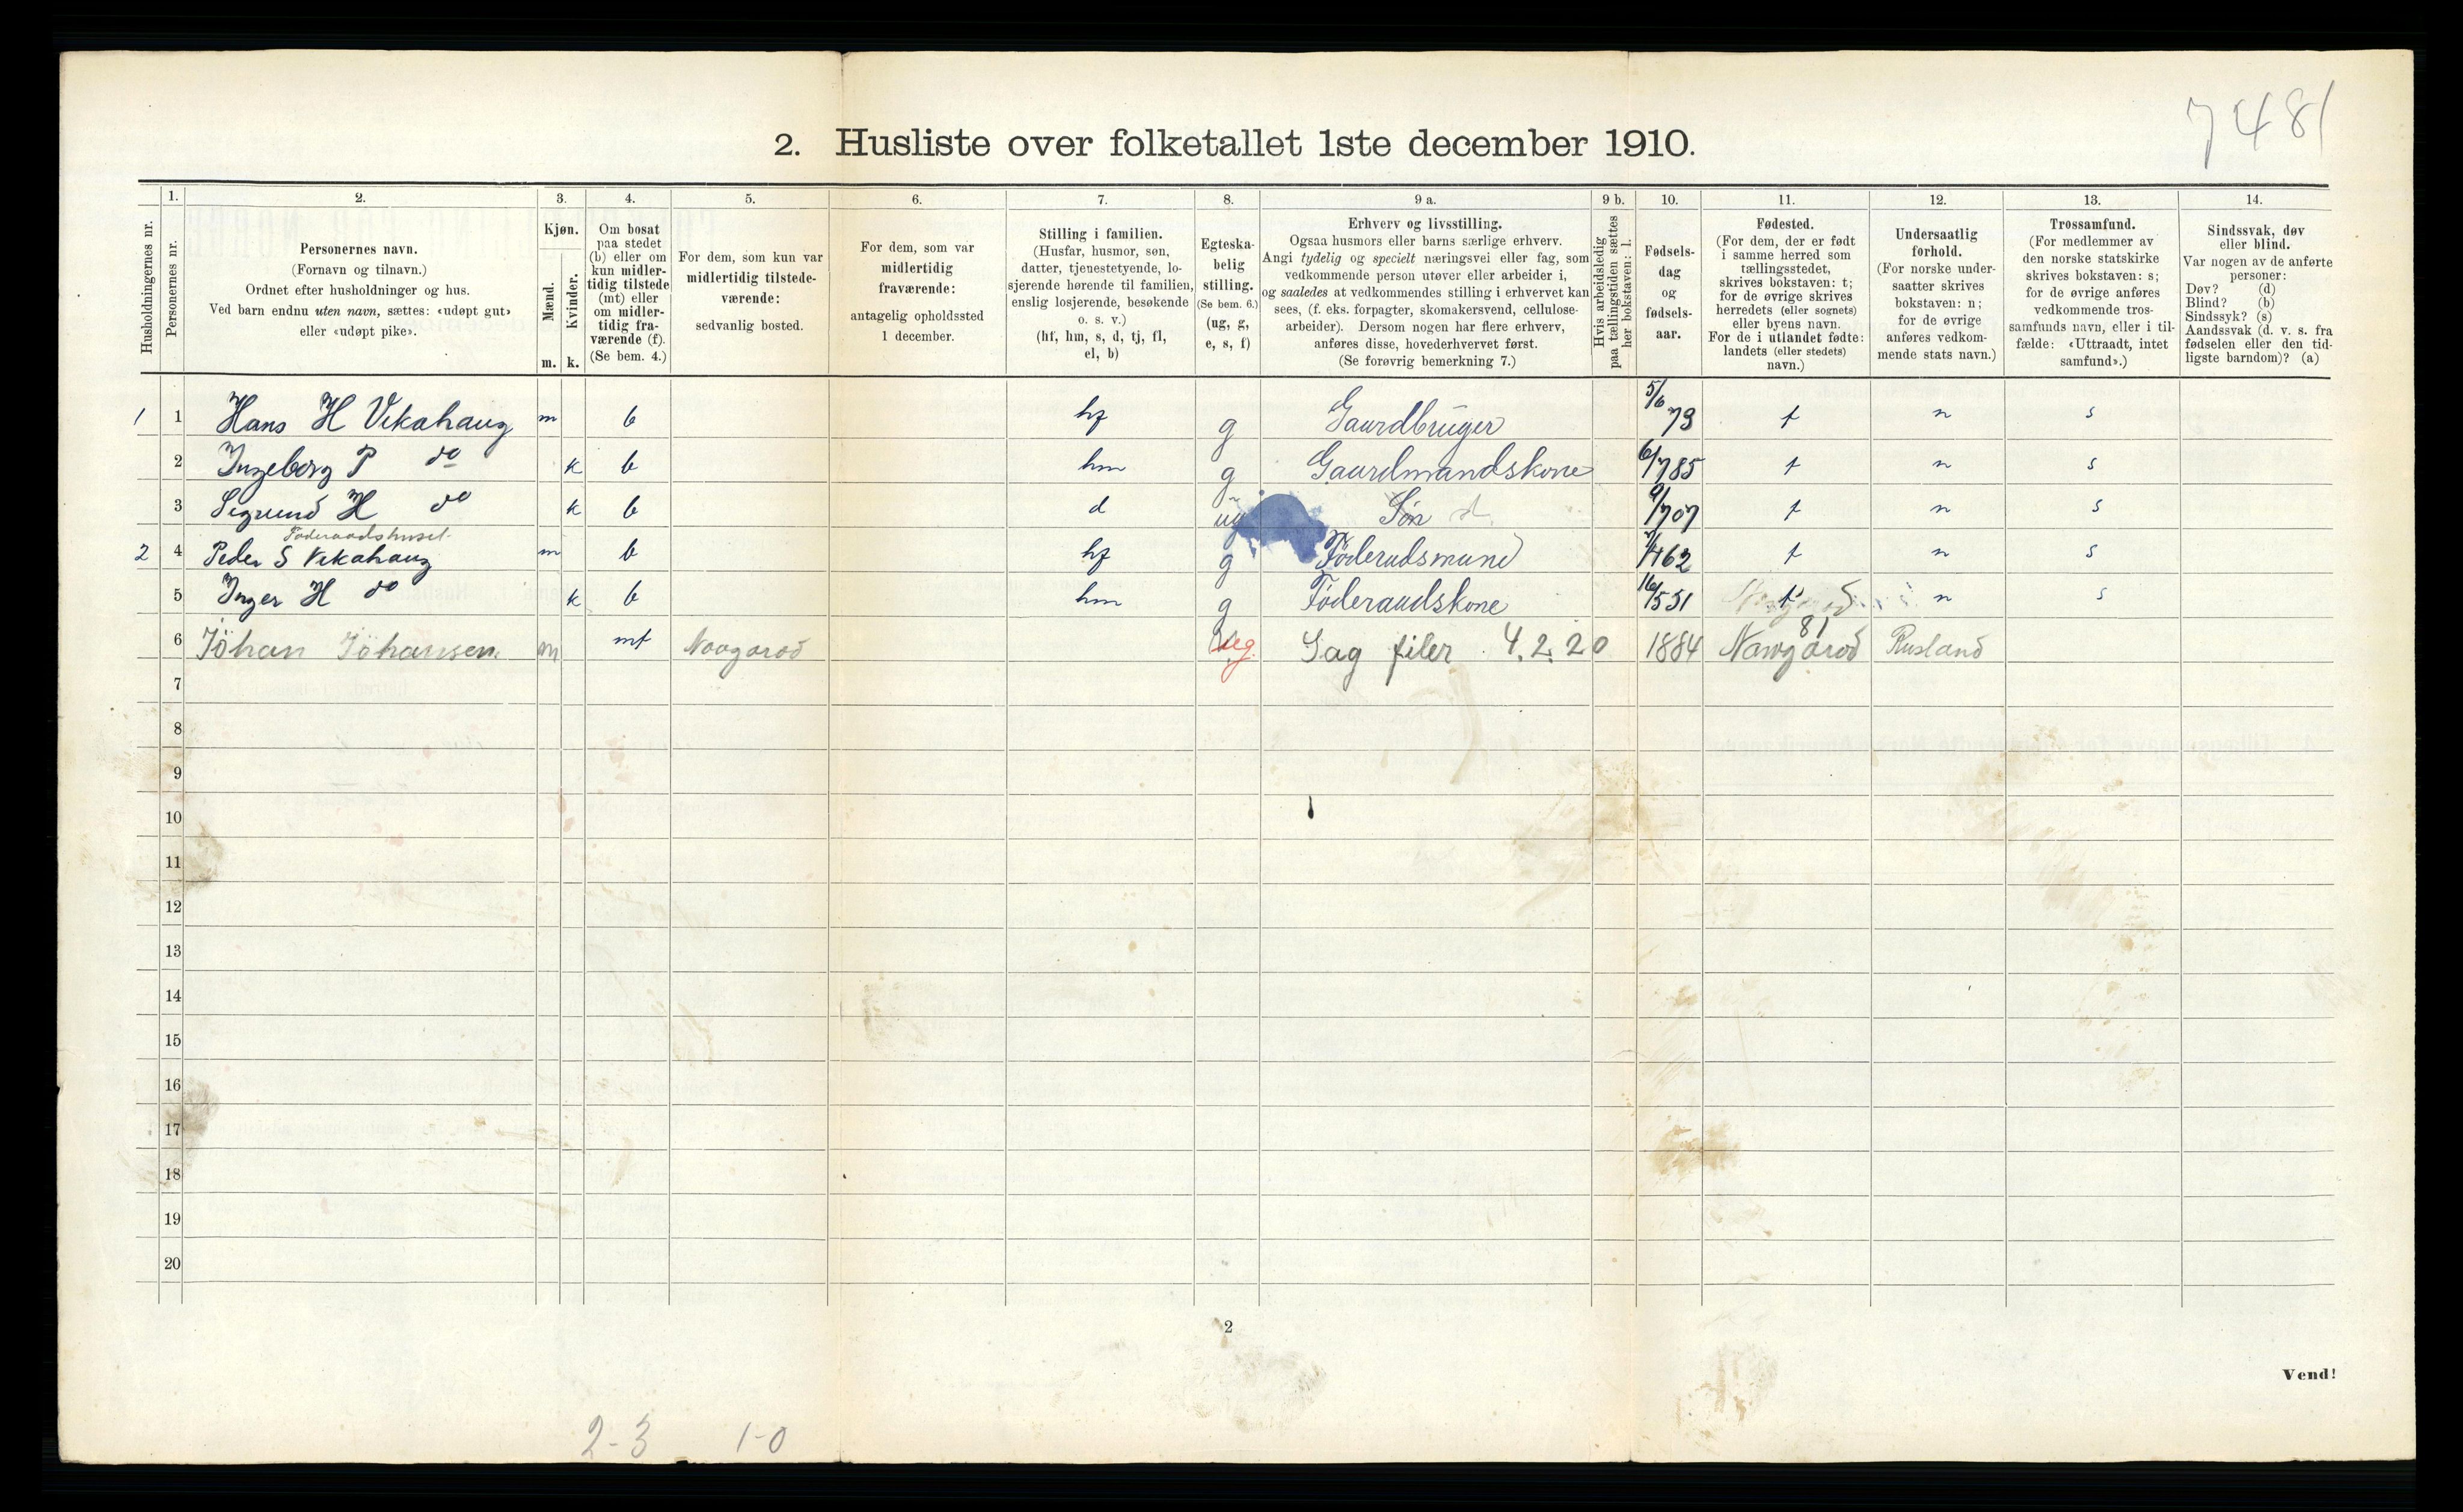 7481
2. Husliste over folketallet 1ste december 1910.
Husholdningernes nr.
1.
Personernes nr.
2.
Personernes navn.
(Fornavn og tilnavn.)
Ordnet efter husholdninger og hus.
Ved barn endnu uten navn, sættes: «udøpt gut»
eller «udøpt pike».
3.
Kjøn.
Mænd.
Kvinder.
m. k.
4.
Om bosat
paa stedet
(b) eller om
kun midler-
tidig tilstede
(mt) eller
om midler-
tidig fra-
værende (f).
(Se bem. 4.)
5.
For dem, som kun var
midlertidig tilstede-
værende:
sedvanlig bosted.
6.
For dem, som var
midlertidig
fraværende:
antagelig opholdssted
1 december.
7.
Stilling i familien.
(Husfar, husmor, søn,
datter, tjenestetyende, lo-
sjerende hørende til familien,
enslig losjerende, besøkende
o. s. v.)
(hf, hm, s, d, tj, fl,
el, b)
8.
Egteska-
belig
stilling.
(Se bem. 6.)
(ug, g,
e, s, f)
9 a.
Erhverv og livsstilling.
Ogsaa husmors eller barns særlige erhverv.
Angi tydelig og specielt næringsvei eller fag, som
vedkommende person utøver eller arbeider i,
og saaledes at vedkommendes stilling i erhvervet kan
sees, (f. eks. forpagter, skomakersvend, cellulose-
arbeider). Dersom nogen har flere erhverv,
anføres disse, hovederhvervet først.
(Se forøvrig bemerkning 7.)
9 b.
Hvis arbeidsledig
paa tællingstiden sættes
her bokstaven: l.
10.
Fødsels-
dag
og
fødsels-
aar.
11.
Fødested.
(For dem, der er født
i samme herred som
tællingsstedet,
skrives bokstaven: t;
for de øvrige skrives
herredets (eller sognets)
eller byens navn.
For de i utlandet fødte:
landets (eller stedets)
navn.)
12.
Undersaatlig
forhold.
(For norske under-
saatter skrives
bokstaven: n;
for de øvrige
anføres vedkom-
mende stats navn.)
13.
Trossamfund.
(For medlemmer av
den norske statskirke
skrives bokstaven: s;
for de øvrige anføres
vedkommende tros-
samfunds navn, eller i til-
fælde: «Uttraadt, intet
samfund».)
14.
Sindssvak, døv
eller blind.
Var nogen av de anførte
personer:
Døv? (d)
Blind? (b)
Sindssyk? (s)
Aandssvak (d. v. s. fra
fødselen eller den tid-
ligste barndom)? (a)
1 1 Hans H Vikahaug m b hf g Gaurdbruger 5/6 79 t n s
2 Ingeborg P do k b hm g Gaurdmandskone 6/7 85 t n s
3 Sigrund H do k b d ug Søn d 9/7 07 t n s
Føderaadshuset
2 4 Peder S Vikahaug m b hf g Føderudsmand 62 t n s
5 Inger H do k b hm g Føderaudskone 16/5 51 t n s
81
6 Johan Johansen m mt Novgorod ug. Sag filer 4.2.20 1884 Nawgorod Rusland
7
8
9
10
11
12
13
14
15
16
17
18
19
20
2
Vend!
2-3 1-0